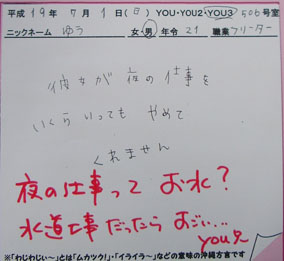 平成19年7月1日(日) YOU・YOU2・YOU3 506号室
ニックネーム ゆう 女・男 年令 21 職業 フリーター
彼女が夜の仕事を
いくらいっても やめて
くれません
夜の仕事って お水?
水道工事だったら おごい...
you兄
※「わじわじぃ〜」とは「ムカツウ!」・「イライラ〜」などの意味の沖縄方言です